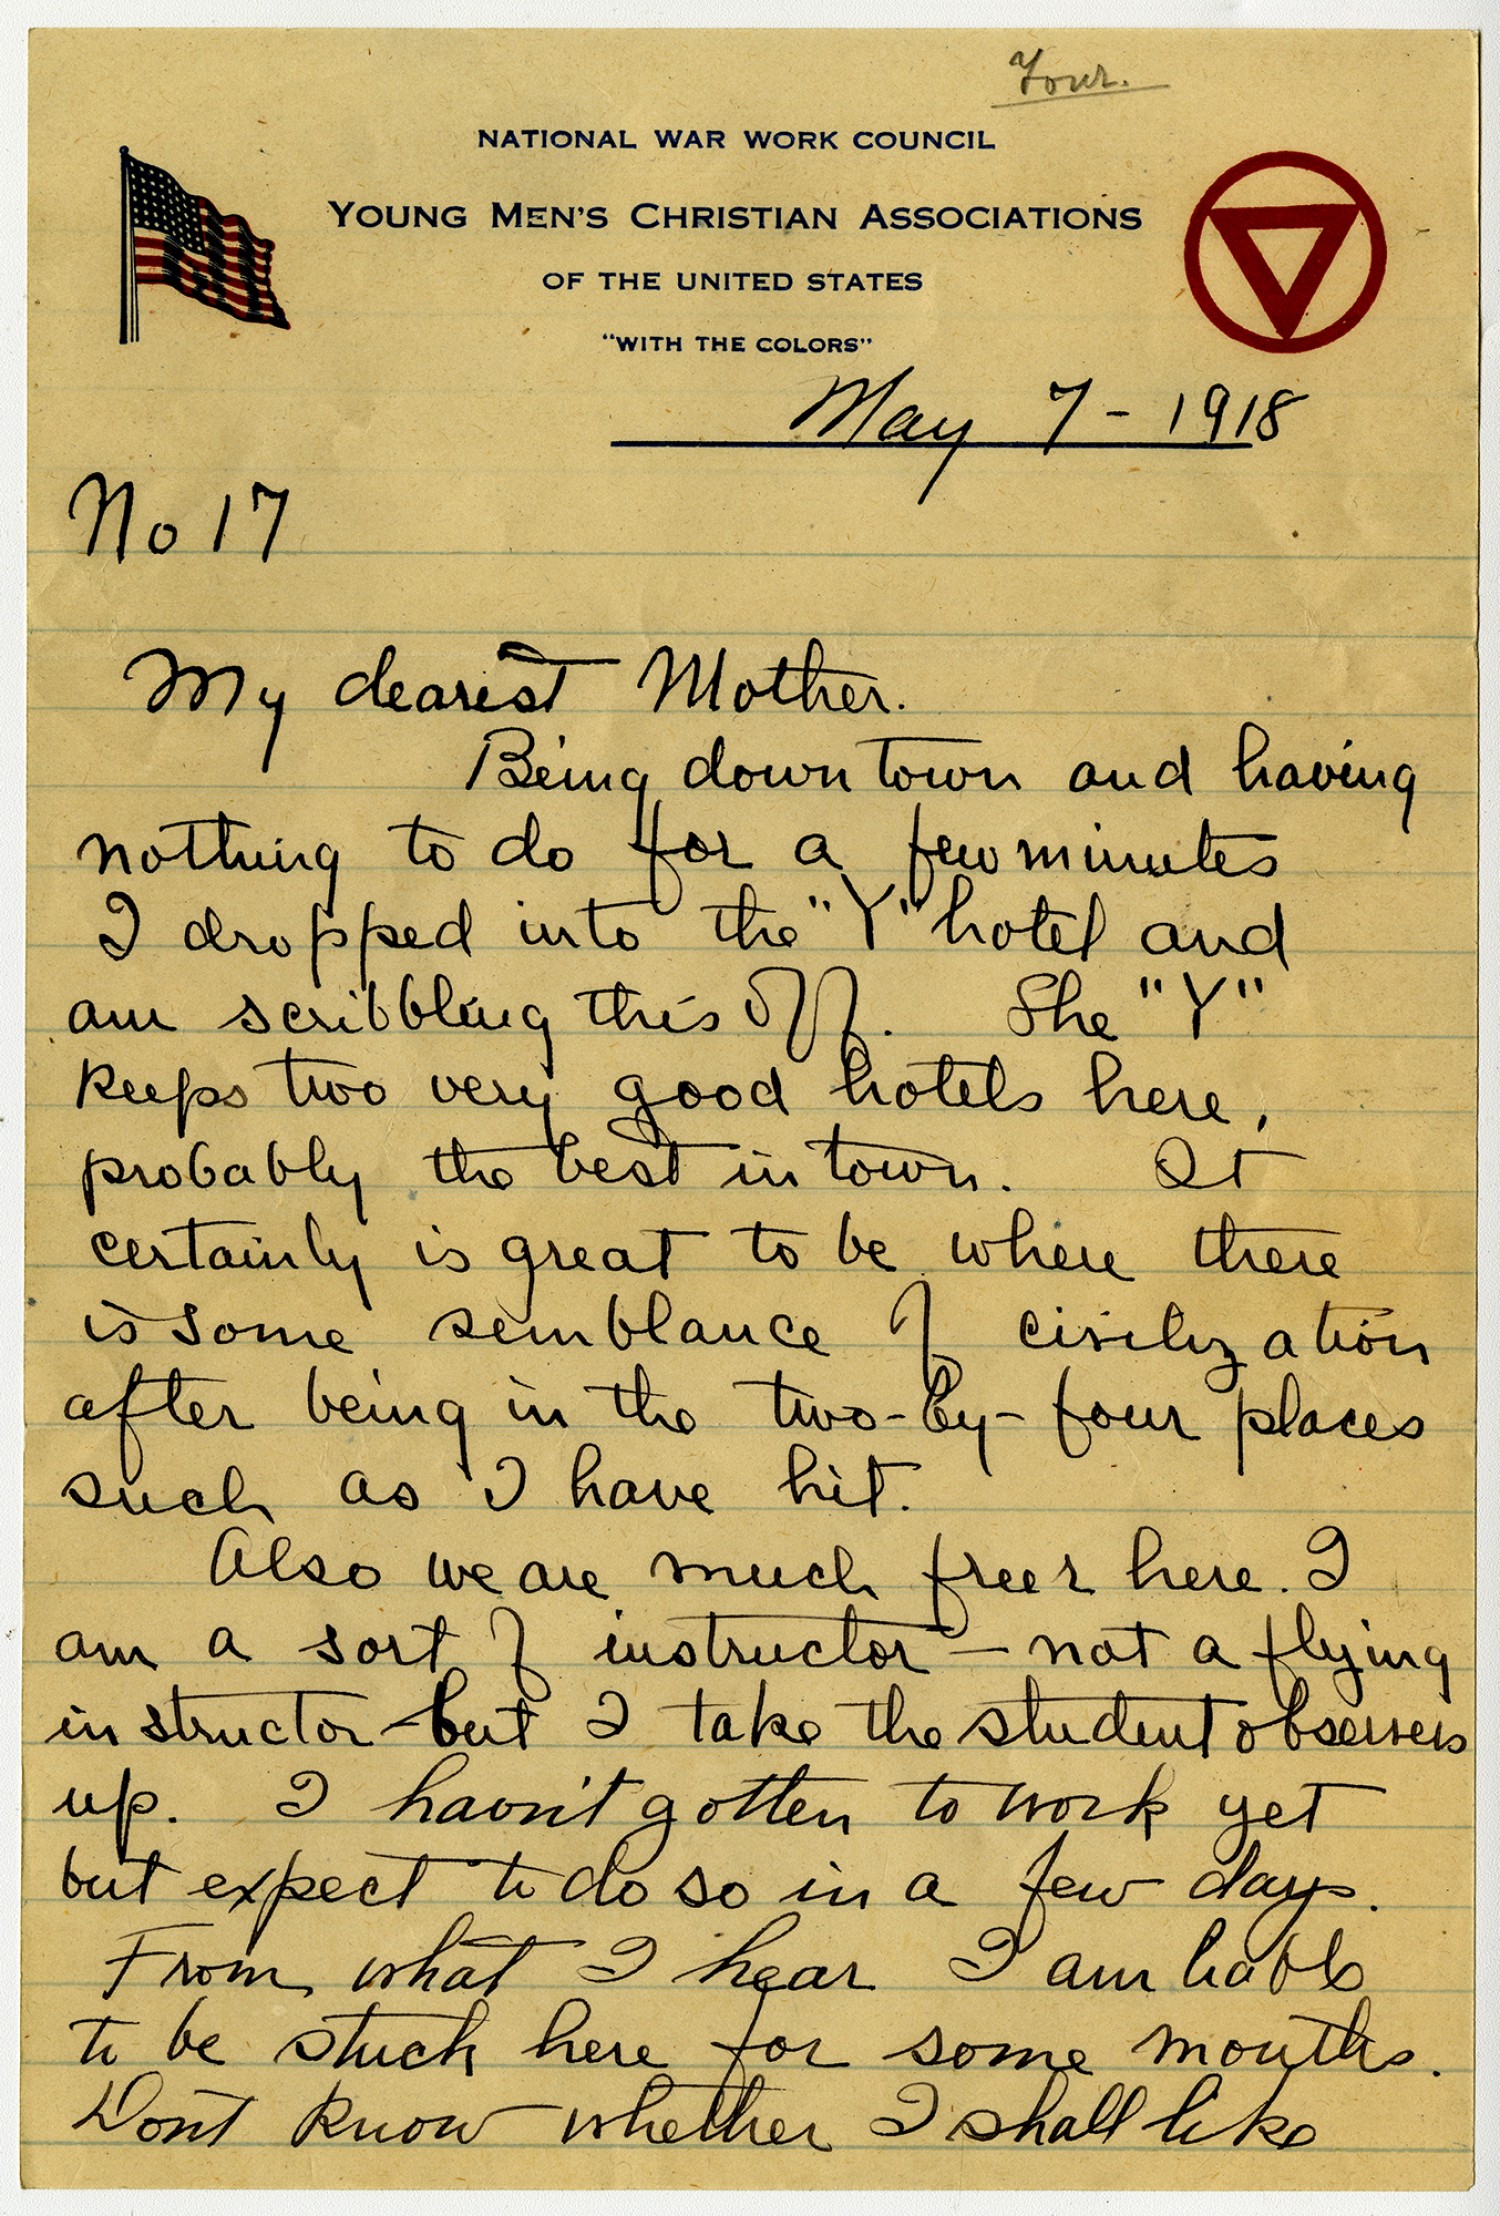 Tour.
NATIONAL WAR WORK COUNCIL
YOUNG MEN'S CHRISTIAN ASSOCIATIONS
OF THE UNITED STATES
"WITH THE COLORS"
May 7 - 1918
No 17
My dearest Mother.
Being down town and having
nothing to do for a few minutes
I dropped into the "Y" hotel and
am scribbling this off. The "Y"
keeps two very good hotels here,
probably the best in town. It
certainly is great to be where there
is some semblance of civilization
after being in the two-by-four places
such as I have hit.
Also we are much freer here. I
am a sort of instructor - not a flying
instructor - but I take the student observers
up. I havn't gotten to work yet
but expect to do so in a few days.
From what I hear I am liable
to be stuck here for some months.
Don't know whether I shall like